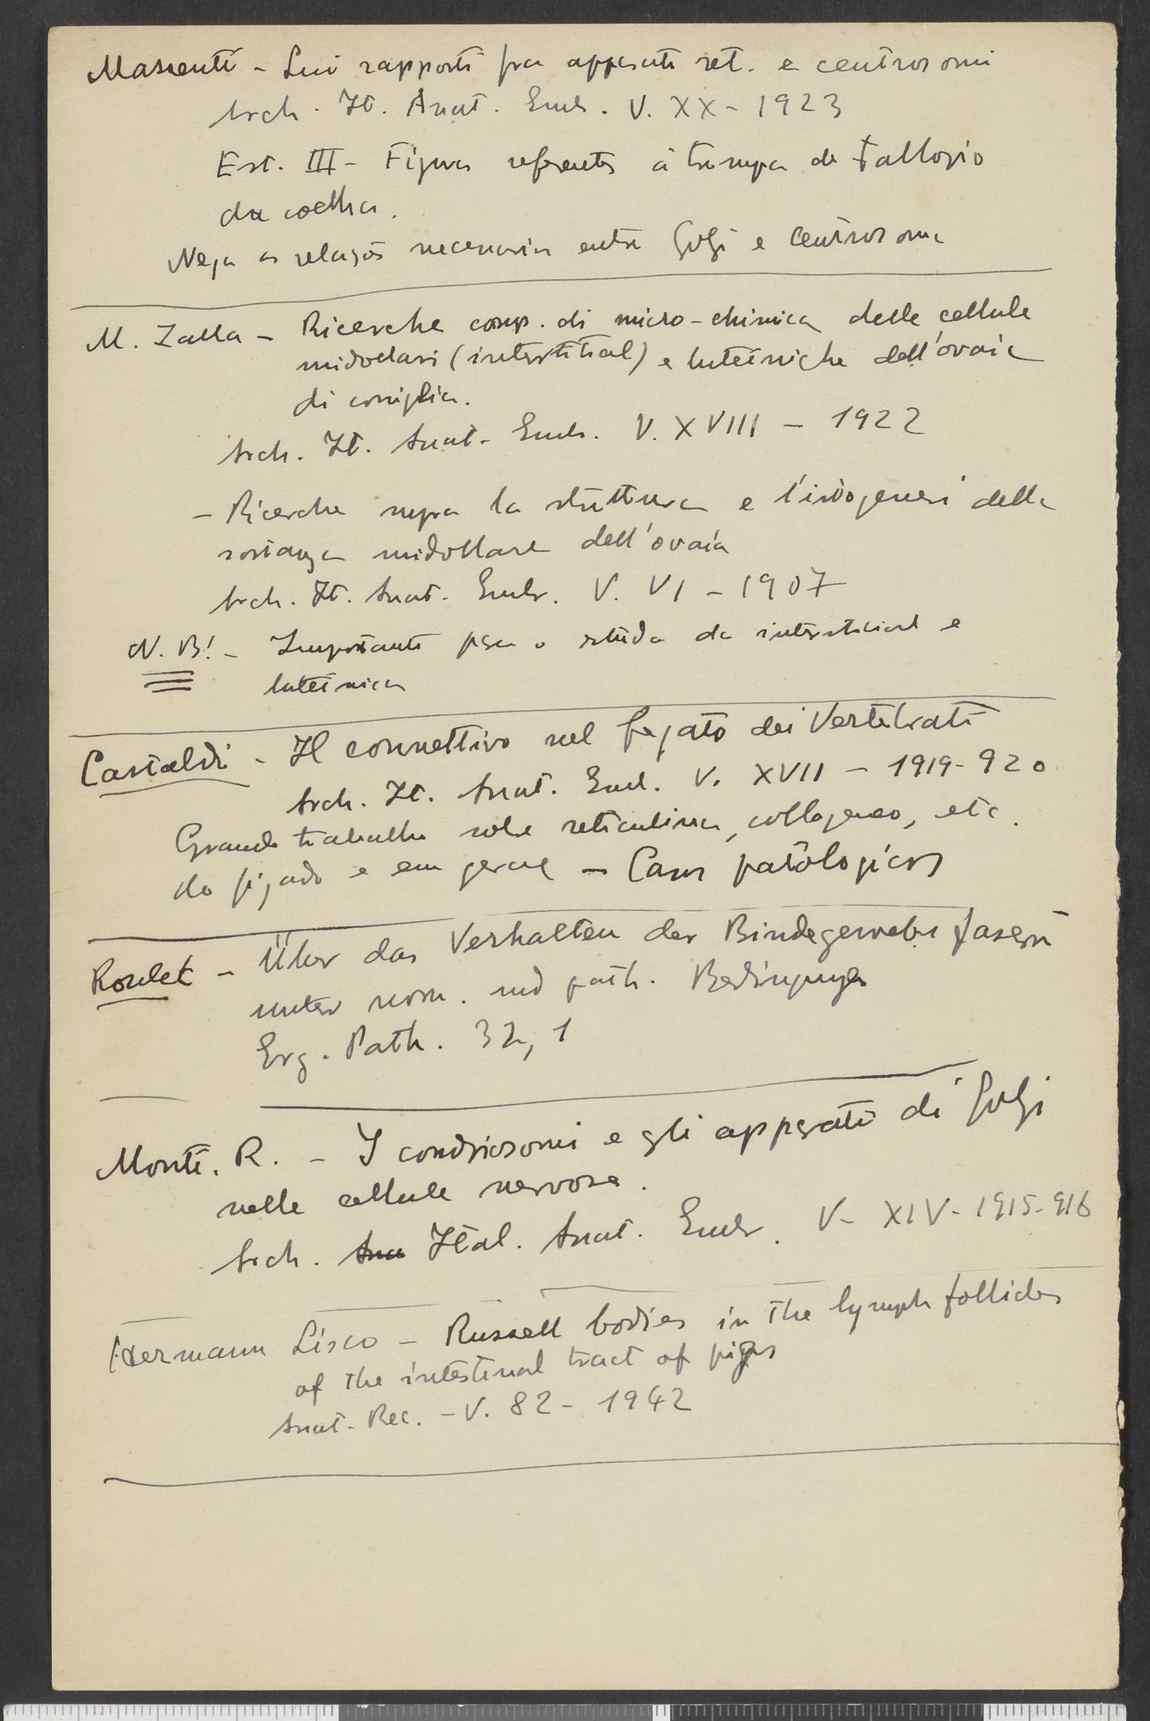 Massenti - Sui rapporti fra apparati ret. e centrosomi
Arch. It. Anat. Emb. V. XX - 1923
Est. III - Figuras referentes à trompa de Fallopio
da coelha.
Nega as relações necessarias entre Golgi e centrosoma
M. Zalla - Ricerche comp. di micro-chimica delle cellule
midollari (interstitial) e luteiniche dell'ovaia
di coniglia.
Arch. It. Anat. Emb. V. XVIII - 1922
- Ricerche sopra la struttura e l'istogenesi della
sostanza midollare dell'ovaia
Arch. It. Anat. Embr. V. VI - 1907
N. B! - Importante para o estudo da intersticial e
luteinica
Castaldi - Il connettivo nel fegato dei Vertebrati
Arch. It. Anat. Emb. V. XVII - 1919-920
Grande trabalho sobre reticulina, collageneo, etc.
do figado e em geral - Casos patologicos
Roulet - Über das Verhalten der Bindegewebsfasern
unter norm. und path. Bedingungen
Erg. Path. 32, 1
Monti. R. - I condriosomi e gli apparati di Golgi
nelle cellule nervose.
Arch. Ana Ital. Anat. Embr. V - XIV - 1915-916
Hermann Lisco - Russell bodies in the lymph follicles
of the intestinal tract of pigs
Anat. Rec. - V. 82 - 1942